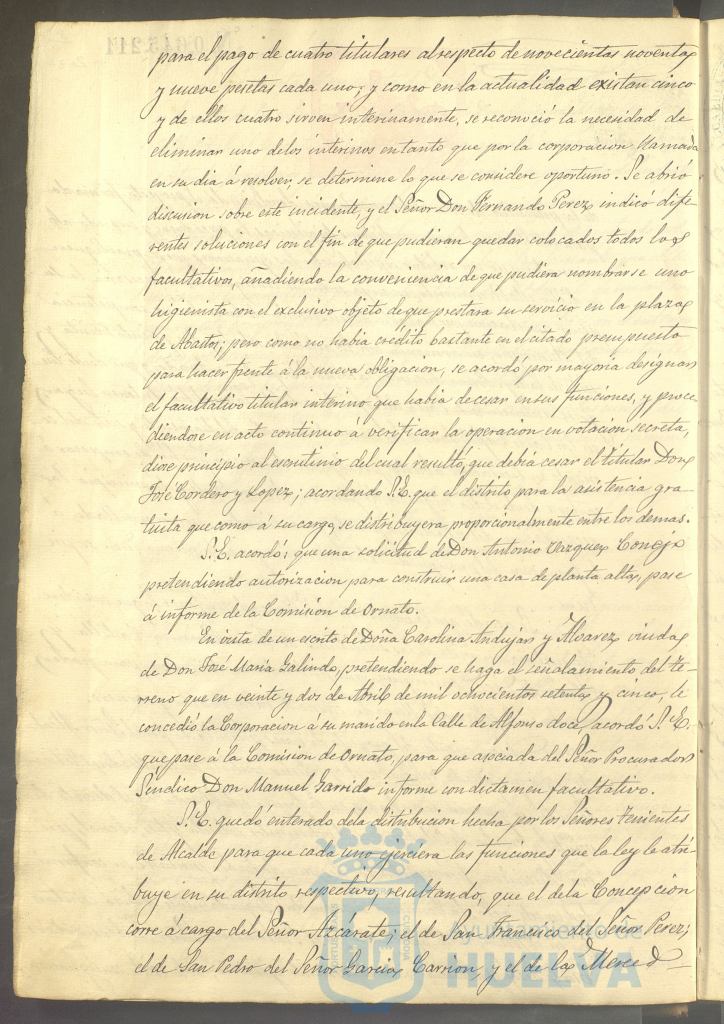 para el pago de cuatro titulares al respecto de novecientas noventa
y nueve pesetas cada uno; y como en la actualidad existan cinco
y de ellos cuatro sirven interinamente, se reconoció la necesidad de
eliminar uno de los interinos en tanto que por la corporacion llamada
en su dia á resolver, se determine lo que se considere oportuno. Se abrió
discusion sobre este incidente, y el Señor Don Fernando Perez indicó dife-
rentes soluciones con el fin de que pudieran quedar colocados todos los
facultativos, añadiendo la conveniencia de que pudiera nombrarse uno
higienista con el exclusivo objeto de que prestara su servicio en la plaza
de Abastos; pero como no habia crédito bastante en el citado presupuesto
para hacer frente á la nueva obligacion, se acordó por mayoria designar
el facultativo titular interino que habia de cesar en sus funciones, y proce-
diendose en acto continuo á verificar la operacion en votacion secreta,
diose principio al escrutinio del cual resultó, que debia cesar el titular Don
José Cordero y Lopez; acordando S.E. que el distrito para la asistencia gra-
tuita que como á su cargo, se distribuyera proporcionalmente entre los demas.
S.E. acordó: que una solicitud de Don Antonio Vazquez Conejo
pretendiendo autorizacion para construir una casa de planta alta, pase
á informe de la Comision de Ornato.
En vista de un escrito de Doña Carolina Andujar y Alvarez viuda
de Don José Maria Galindo, pretendiendo se haga el señalamiento del te-
rreno que en veinte y dos de Abril de mil ochocientos setenta y cinco, le
concedió la Corporacion á su marido en la Calle de Alfonso doce, acordó S.E.
que pase á la Comision de Ornato, para que asociada del Señor Procurador
Sindico Don Manuel Garrido informe con dictamen facultativo.
S.E. quedó enterado de la distribucion hecha por los Señores Tenientes
de Alcalde para que cada uno ejerciera las funciones que la ley le atri-
buye en su distrito respectivo, resultando, que el de la Concepcion
corre á cargo del Señor Azcárate; el de San Francisco del Señor Perez;
el de San Pedro del Señor Garcia Carrion, y el de la Merced
HUELVA